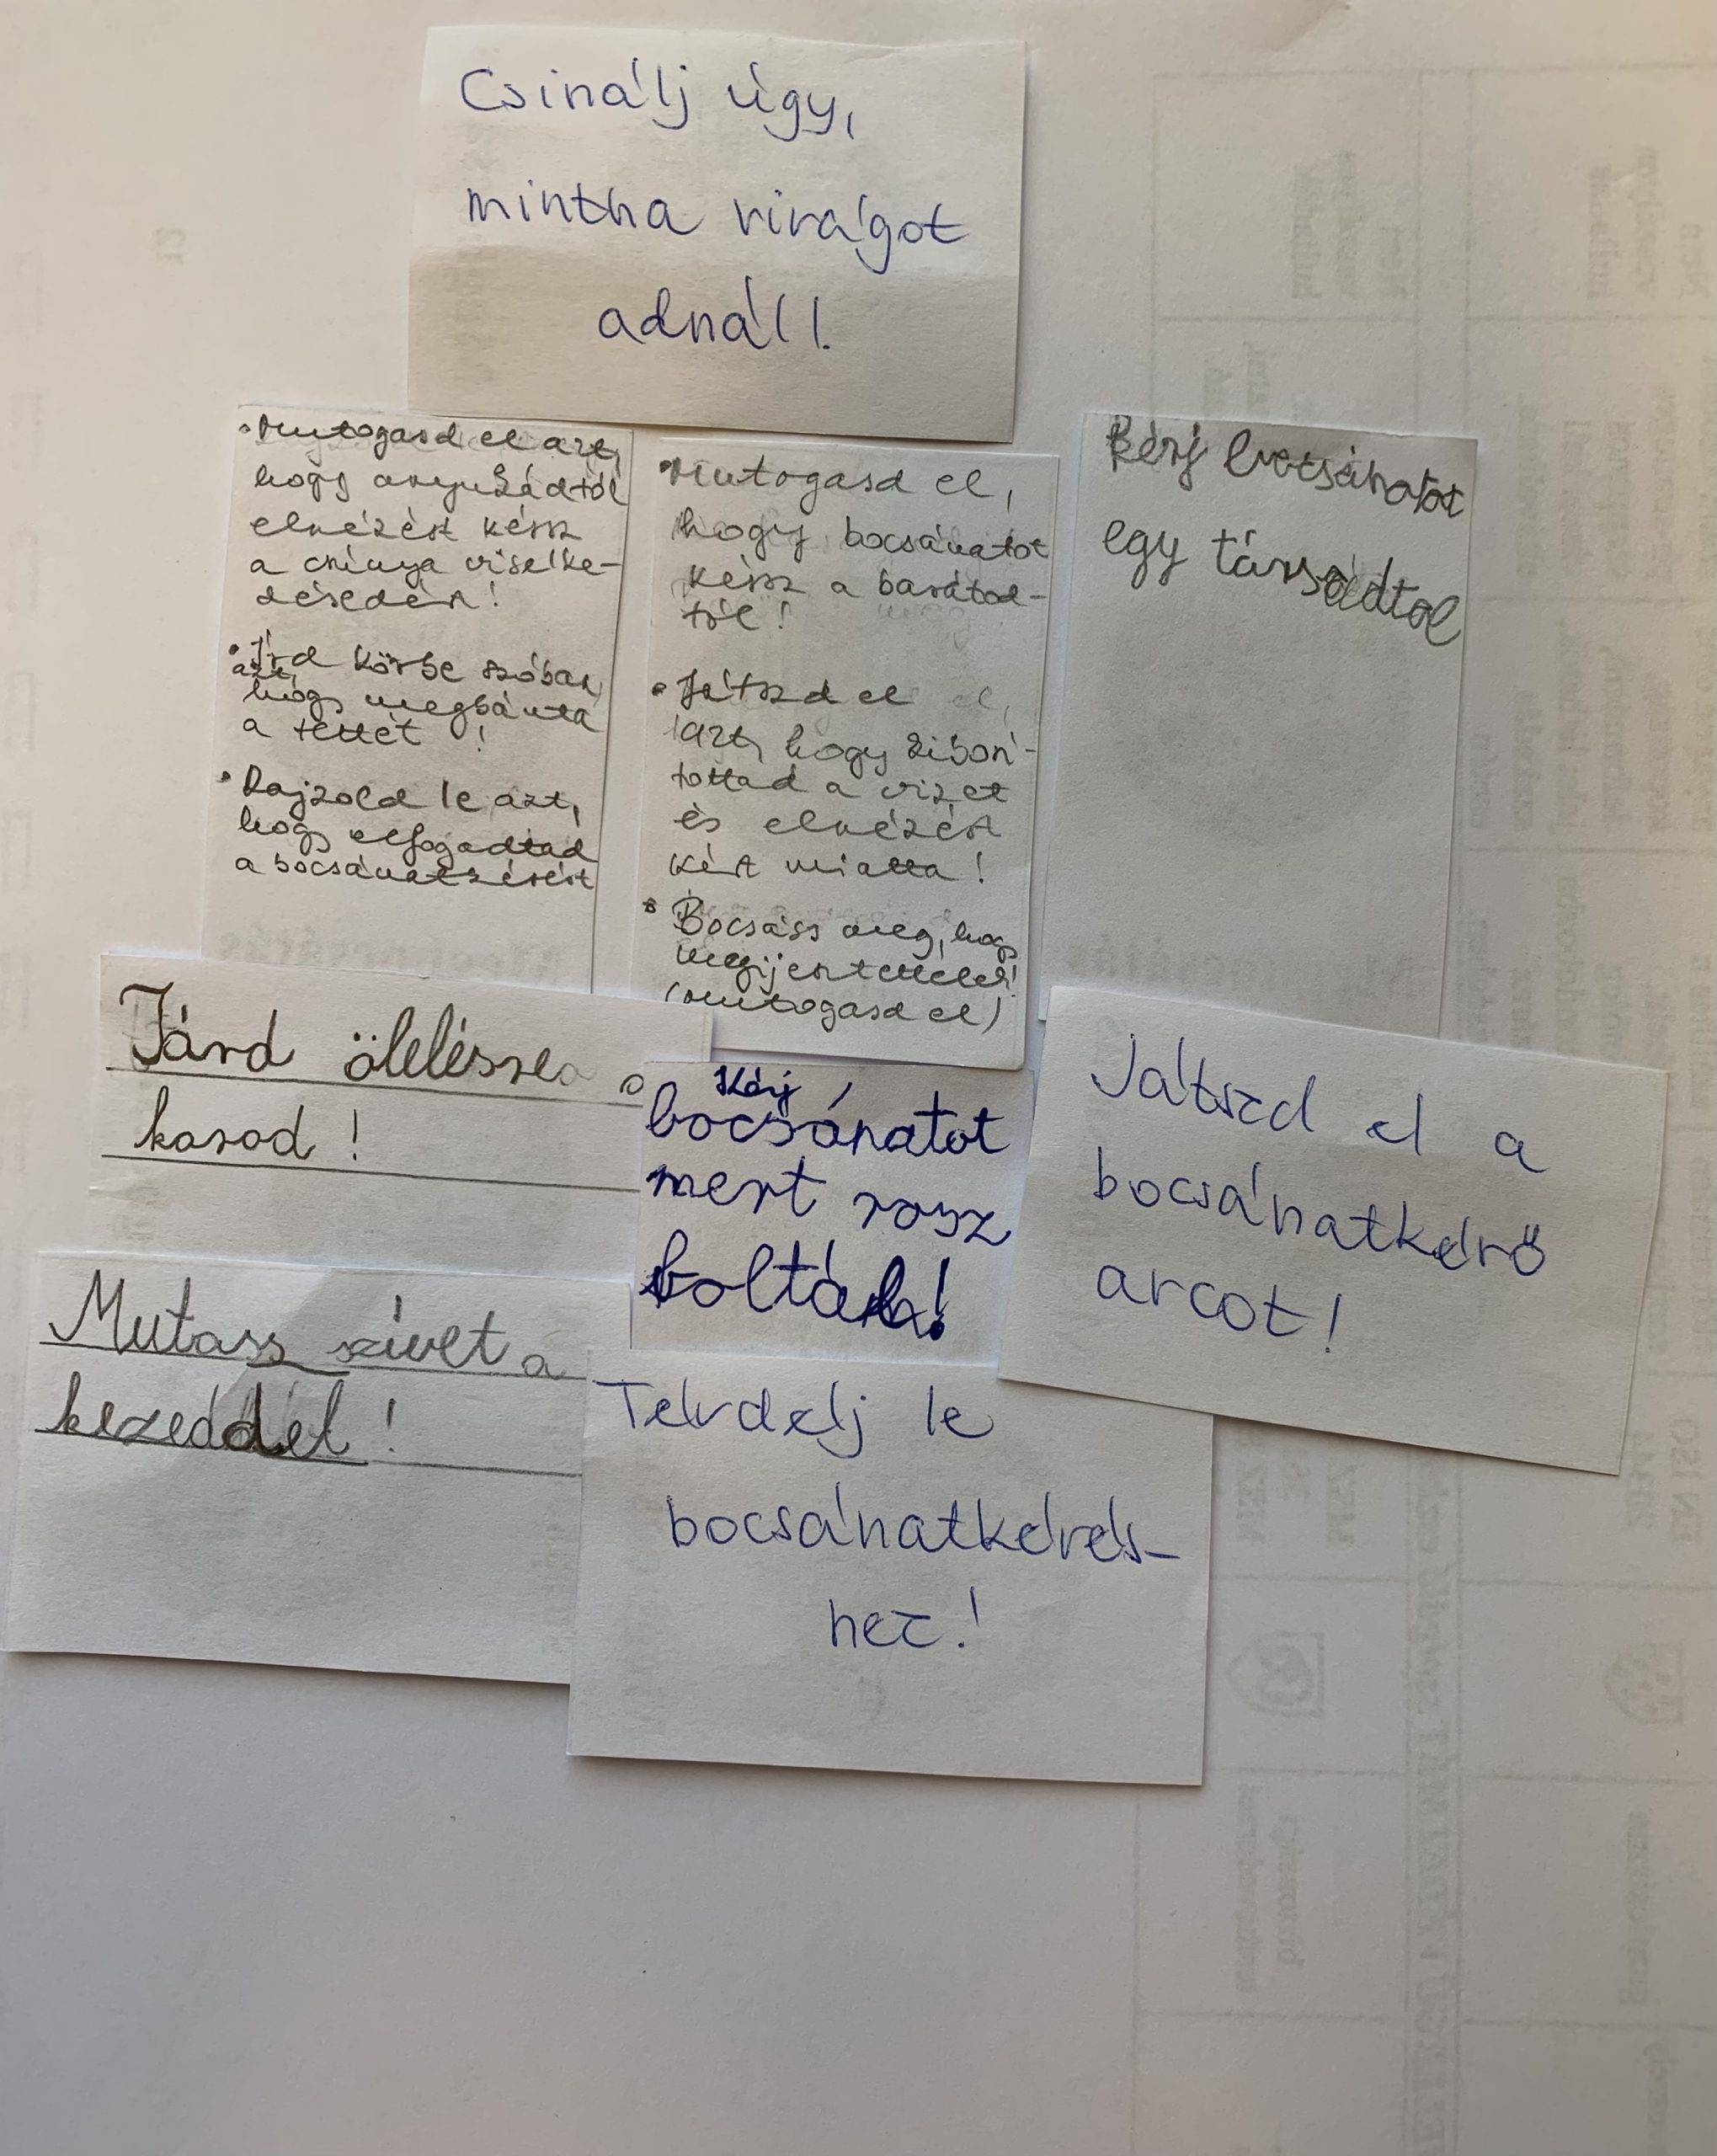 Csinálj úgy,
mintha virágot
adnál!
• Mutogasd el azt,
hogy anyukádtól
elnézést kérsz
a csúnya viselke-
désedért!
• Írd körbe szóban
azt,
hogy megbánta
a tettét !
• Rajzold le azt,
hogy elfogadtad
a bocsánatkérést
• Mutogasd el,
hogy bocsánatot
kérsz a barátod-
tól !
• Játszd el
azt, hogy kibori-
tottad a vizet
és elnézést
kért miatta !
• Bocsáss meg, hogy
megijesztettelek!
(mutogasd el)
Kérj bocsánatot
egy társadtol
Tárd ölelésre a
karod !
Kérj
bocsánatot
mert rosz
voltál!
Játszd el a
bocsánatkérő
arcot!
Mutass szívet a
kezeddel !
Térdelj le
bocsánatkérés-
hez!